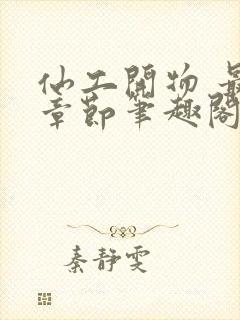 仙工開物 最
章節筆趣閣
秦靜雯